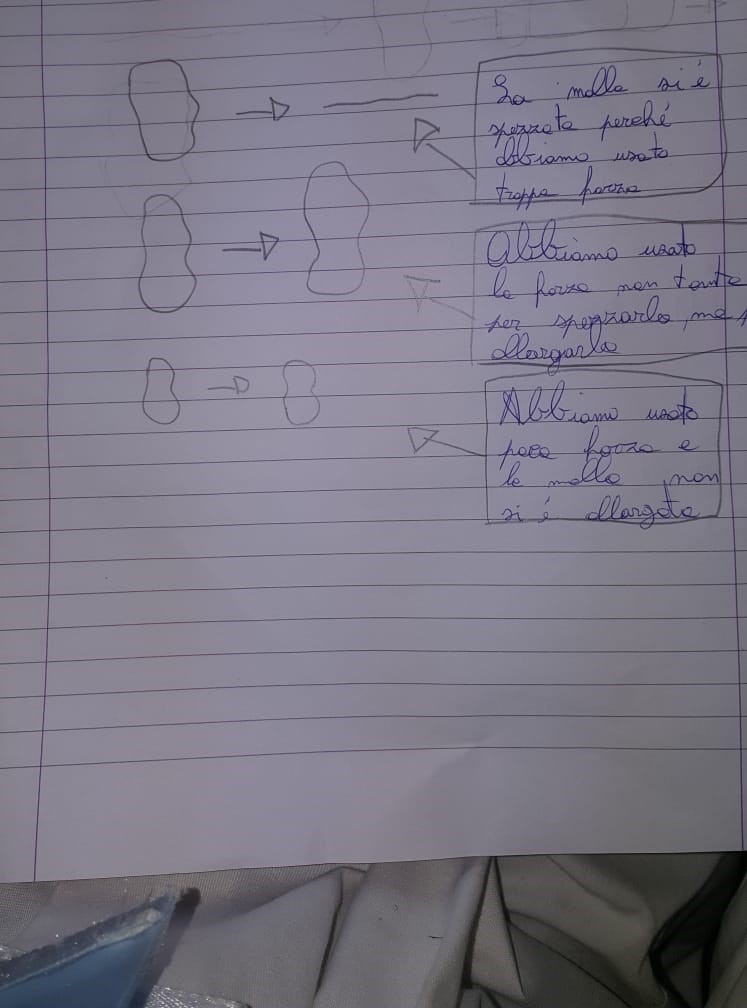 La molla si è
spezzata perché
abbiamo usato
troppa forza
Abbiamo usato
la forza non tanta
per spezzarla, ma
allargarla
Abbiamo usato
poca forza e
la molla non
si è allargata